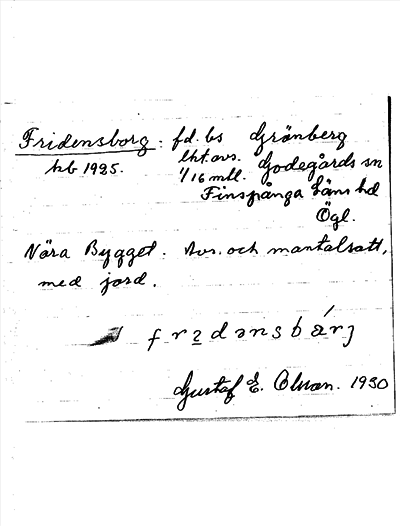 Fridensborg: fd. bs Grönberg
hb 1925. lht. avs. Godegårds sn
1/16 mtl.
Finspånga läns hd
Ögl.
Nära Bygget. Avs. och mantalsatt,
med jord.
Gustaf E. 1930